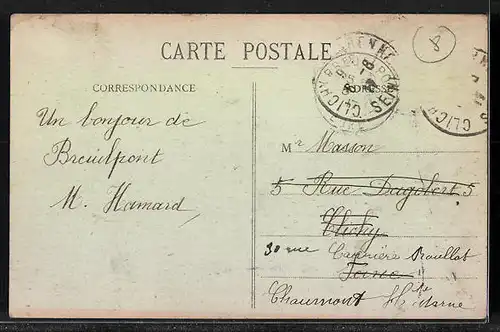 8
CARTE POSTALE
CORRESPONDANCE
ADRESSE
CLICHY
SEINE
CLICHY
Un bonjour de
Breuilpont
M. Hamard
Mr Masson
5 Rue Dagobert 5
Clichy
30 rue Carrière Rouillot
Seine
Chaumont Hte Marne